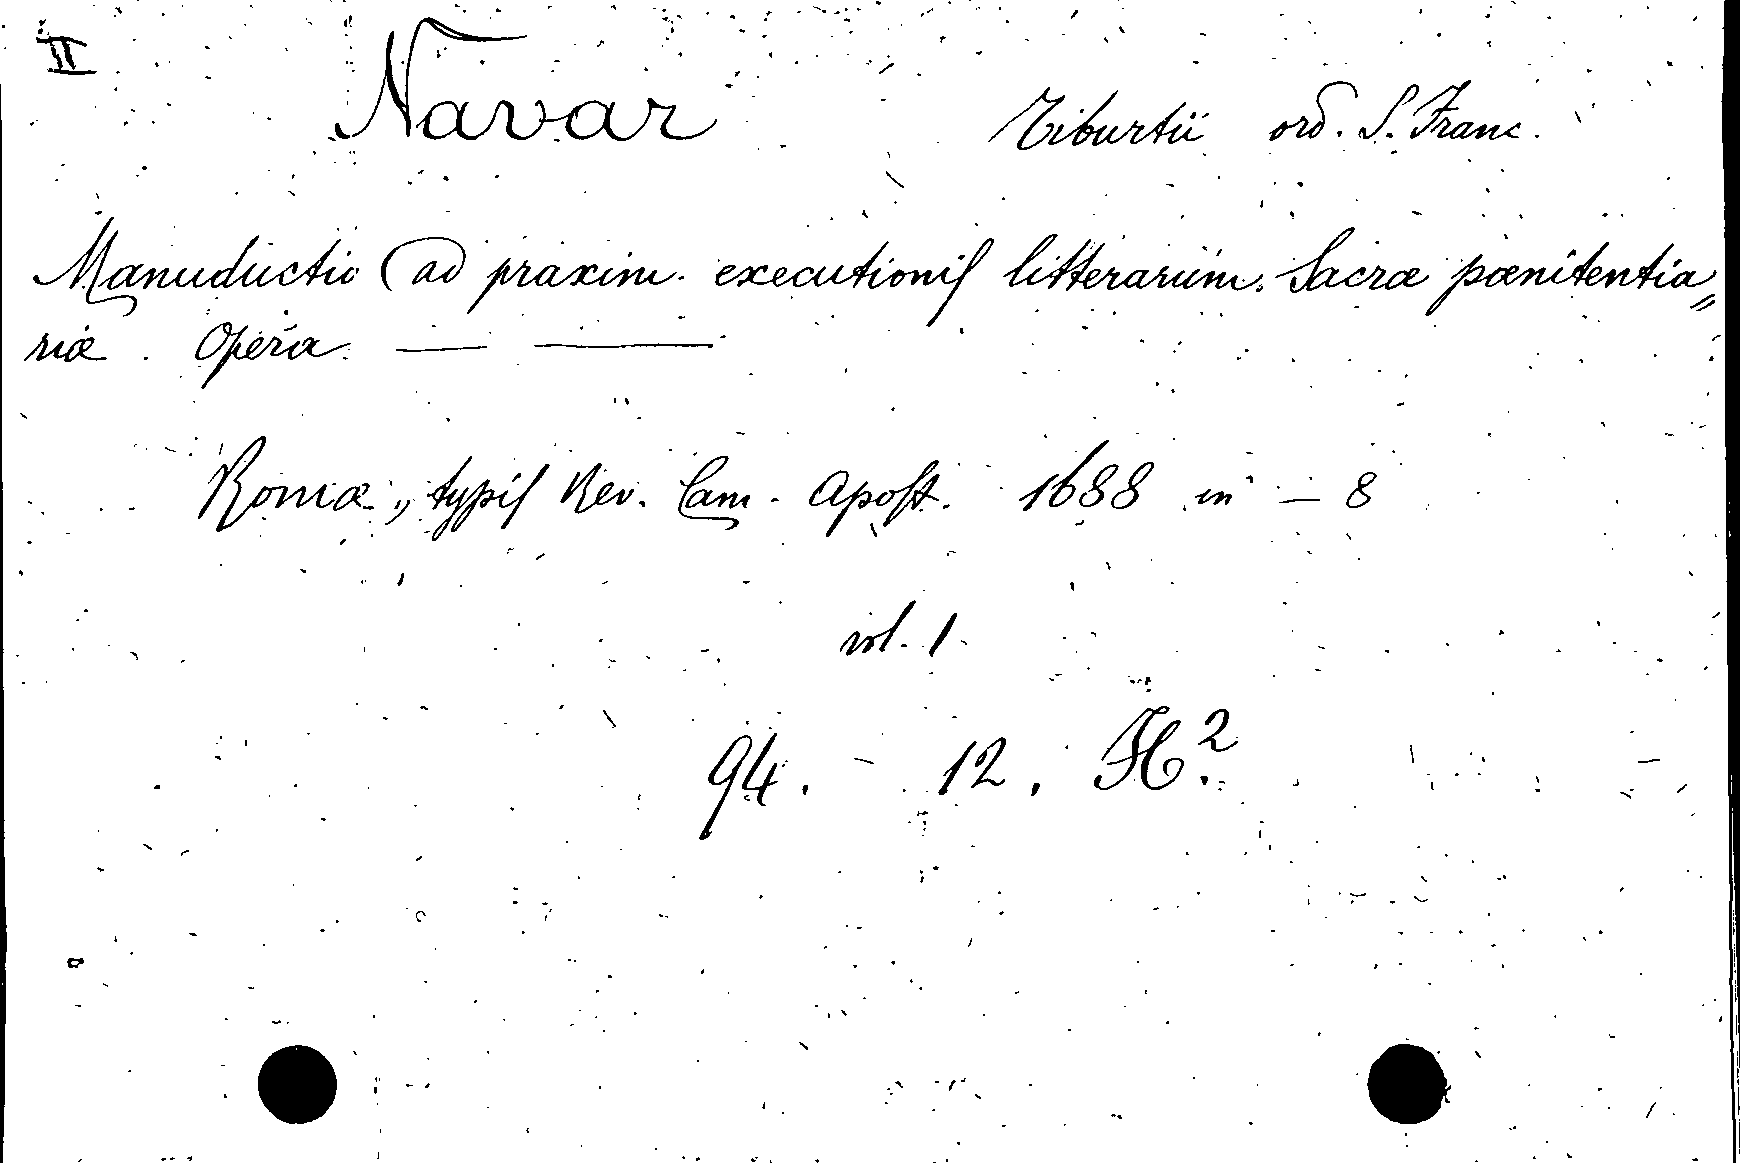 II
Navar Tiburtii ord. S. Franc.
Manuductio ad praxim executionis litterarum Sacræ pœnitentia„
riæ. Opera — —
Romæ, typis Rev. Cam. Apost. 1688 in – 8
vol. 1.
94. – 12. H.²